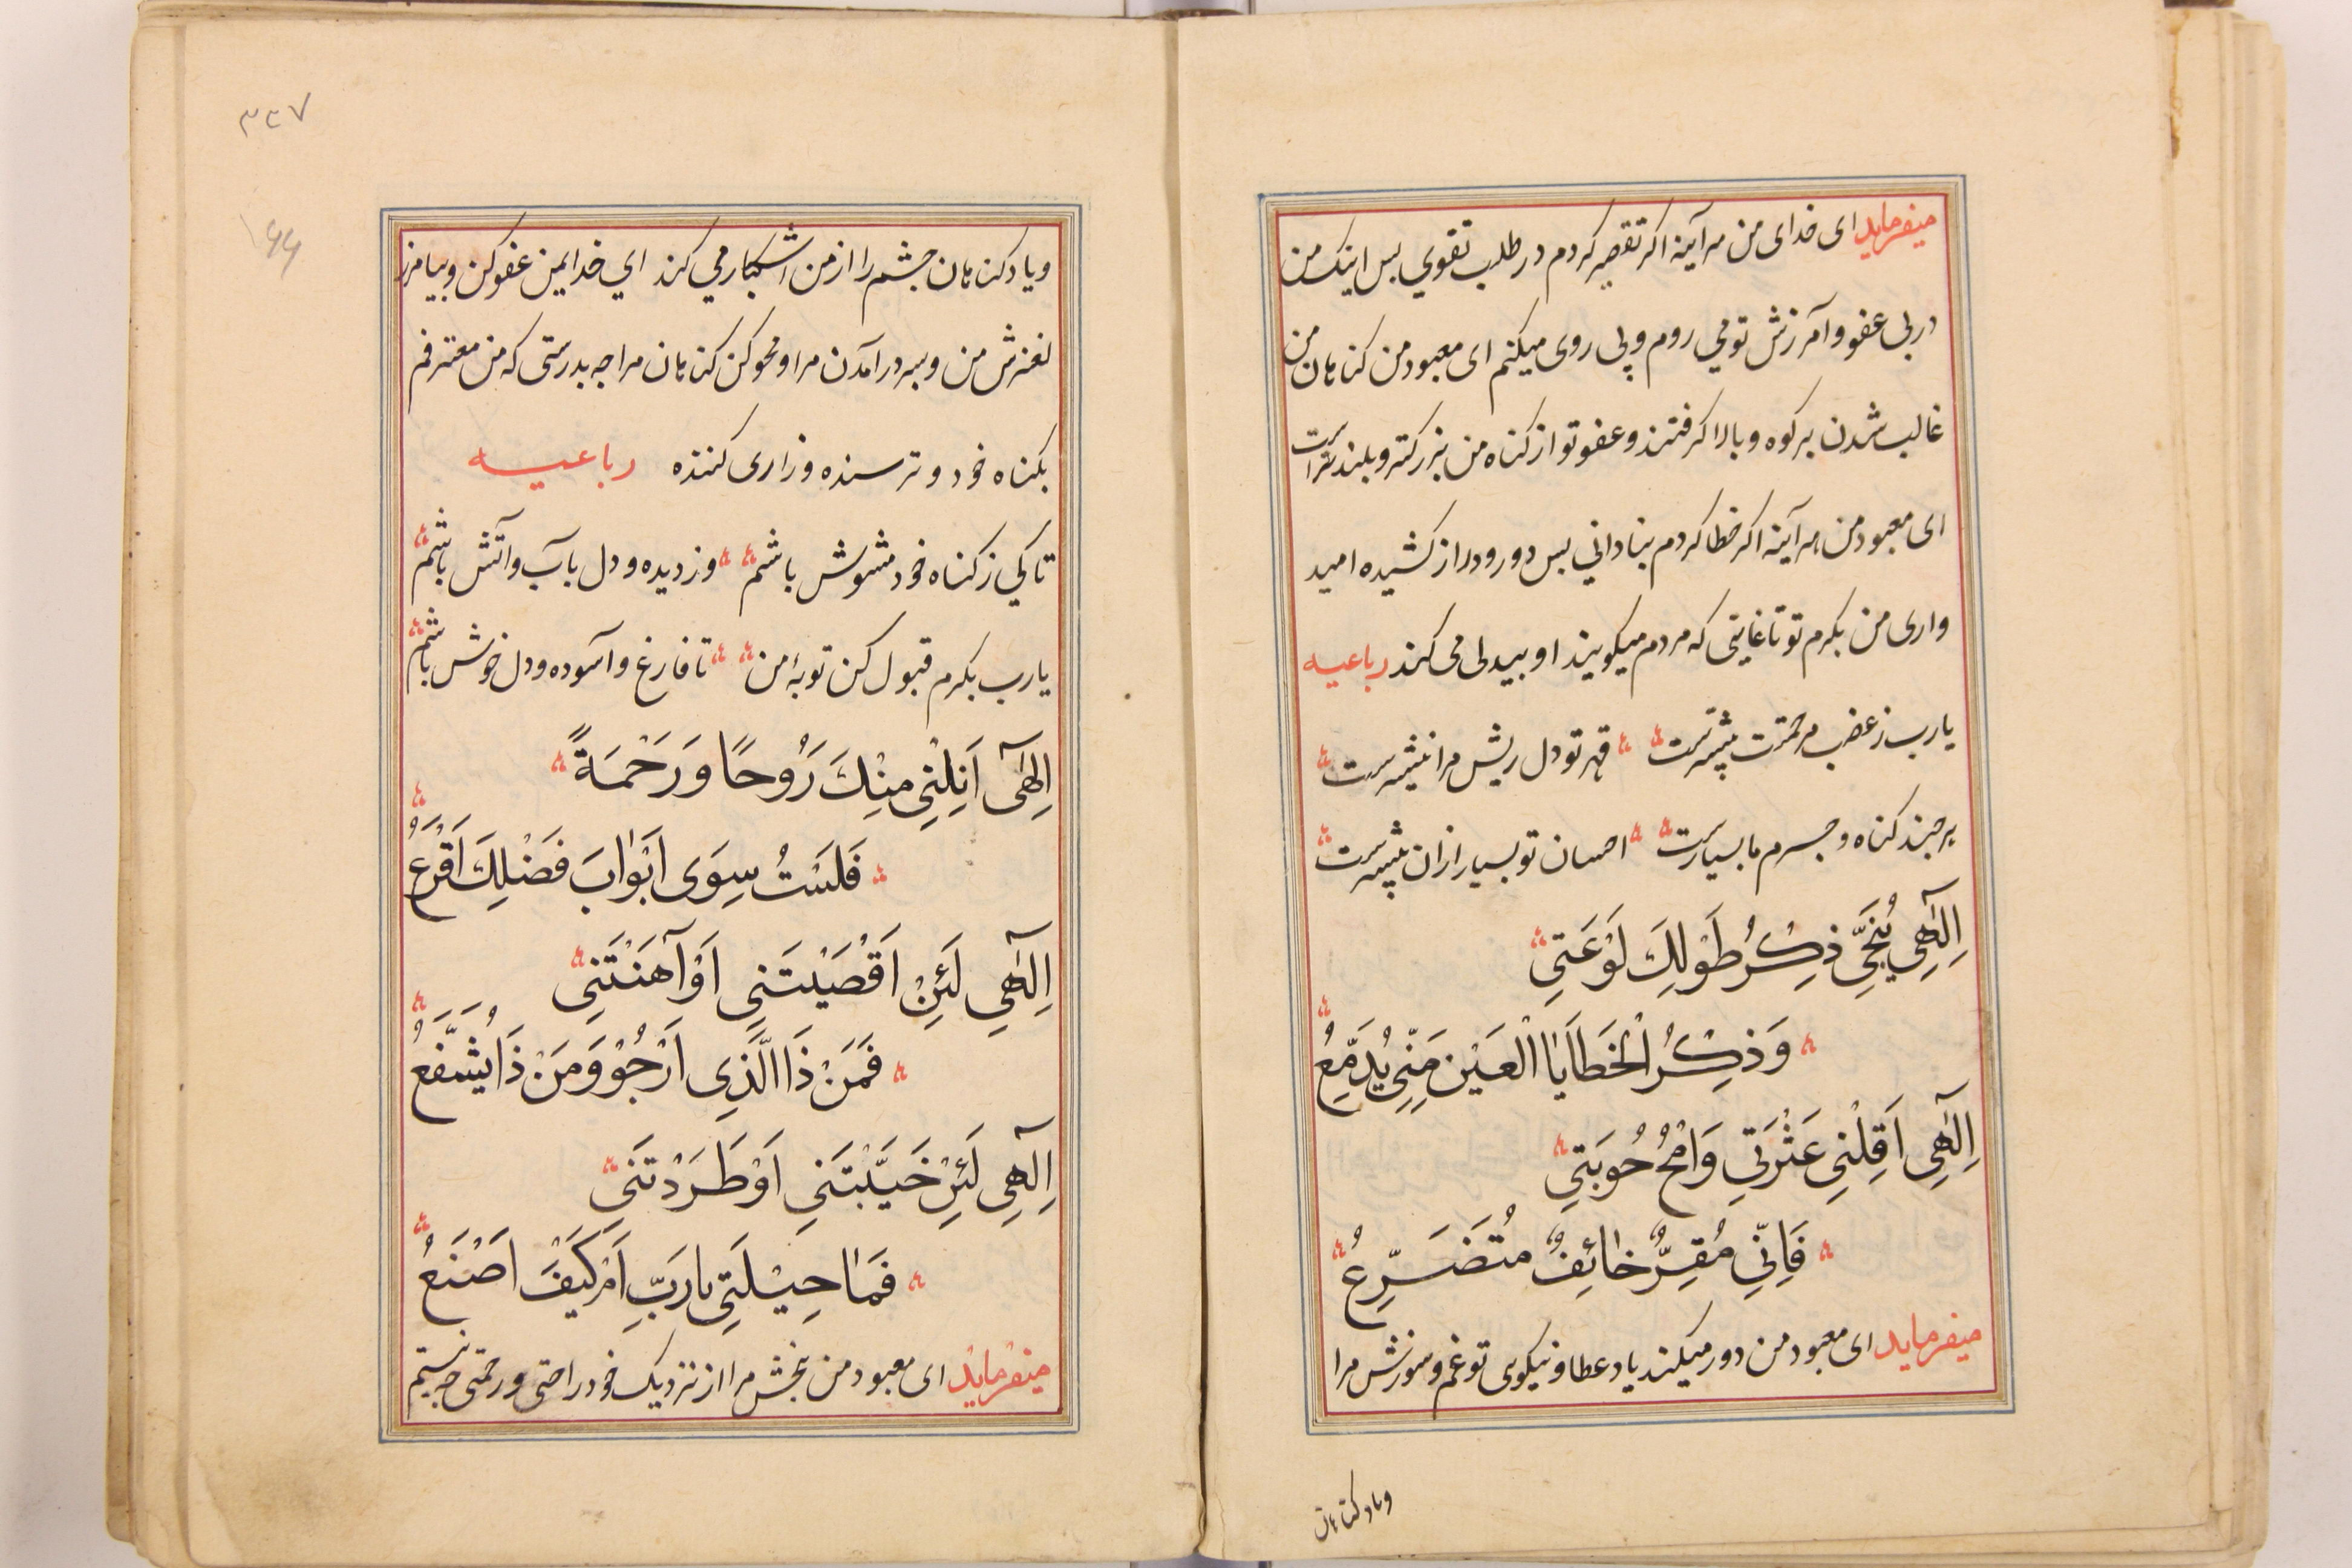 میفرماید ای خدای من هرآینه اکر تقصیر کردم در طلب تقوی بس اینک من
در بی عفو و آمرزش تو می روم و پی روی میکنم ای معبود من کناهان من
غالب شدن بر کوه و بالا کرفتند و عفو تو از کناه من بزرکتر و بلندتراست
ای معبود من هرآینه اکر خطا کردم بنادانی بس دور و دراز کشیده امید
واری من بکرم تو تا غایتی که مردم میکویند او بیدلی می کند رباعیه
یارب ز غضب مرحمتت پیشترست قهر تو دل ریش مرا نیشترست
هر جند کناه و جرم ما بسیارست احسان تو بسیار ازان پیشترست
اِلٰهِي يُنَجِّي ذِكْرُ طَوْلِكَ لَوْعَتِي
وَذِكْرُ الْخَطَايَا الْعَيْنَ مِنِّي يُدَمِّعُ
اِلٰهِي اَقِلْنِي عَثْرَتِي وَامْحُ حُوبَتِي
فَاِنِّي مُقِرٌّ خَائِفٌ مُتَضَرِّعُ
میفرماید ای معبود من دور میکند یاد عطا و نیکوی تو غم و سوزش مرا
و یاد کناهان
۳۲۷
۶۶
و یاد کناهان جشم را از من اشکبار می کند ای خدایمن عفو کن و بیامرز
لغزش من و بسر درآمدن مرا و محو کن کناهان مرا جه بدرستی که من معترفم
بکناه خود و ترسنده و زاری کننده رباعیه
تا کی ز کناه خود مشوش باشم وز دیده و دل بآب و آتش باشم
یارب بکرم قبول کن توبهٔ من تا فارغ و آسوده و دل خوش باشم
اِلٰهِي اَنِلْنِي مِنْكَ رَوْحًا وَرَحْمَةً
فَلَسْتُ سِوَى اَبْوَابَ فَضْلِكَ اَقْرَعُ
اِلٰهِي لَئِنْ اَقْصَيْتَنِي اَوْ اَهَنْتَنِي
فَمَنْ ذَا الَّذِي اَرْجُوْ وَمَنْ ذَا يُشَفَّعُ
اِلٰهِي لَئِنْ خَيَّبْتَنِي اَوْ طَرَدْتَنِي
فَمَا حِيْلَتِي يَارَبِّ اَمْ كَيْفَ اَصْنَعُ
میفرماید ای معبود من بخش مرا از نزدیک خود راحتی و رحمتی جه نیستم